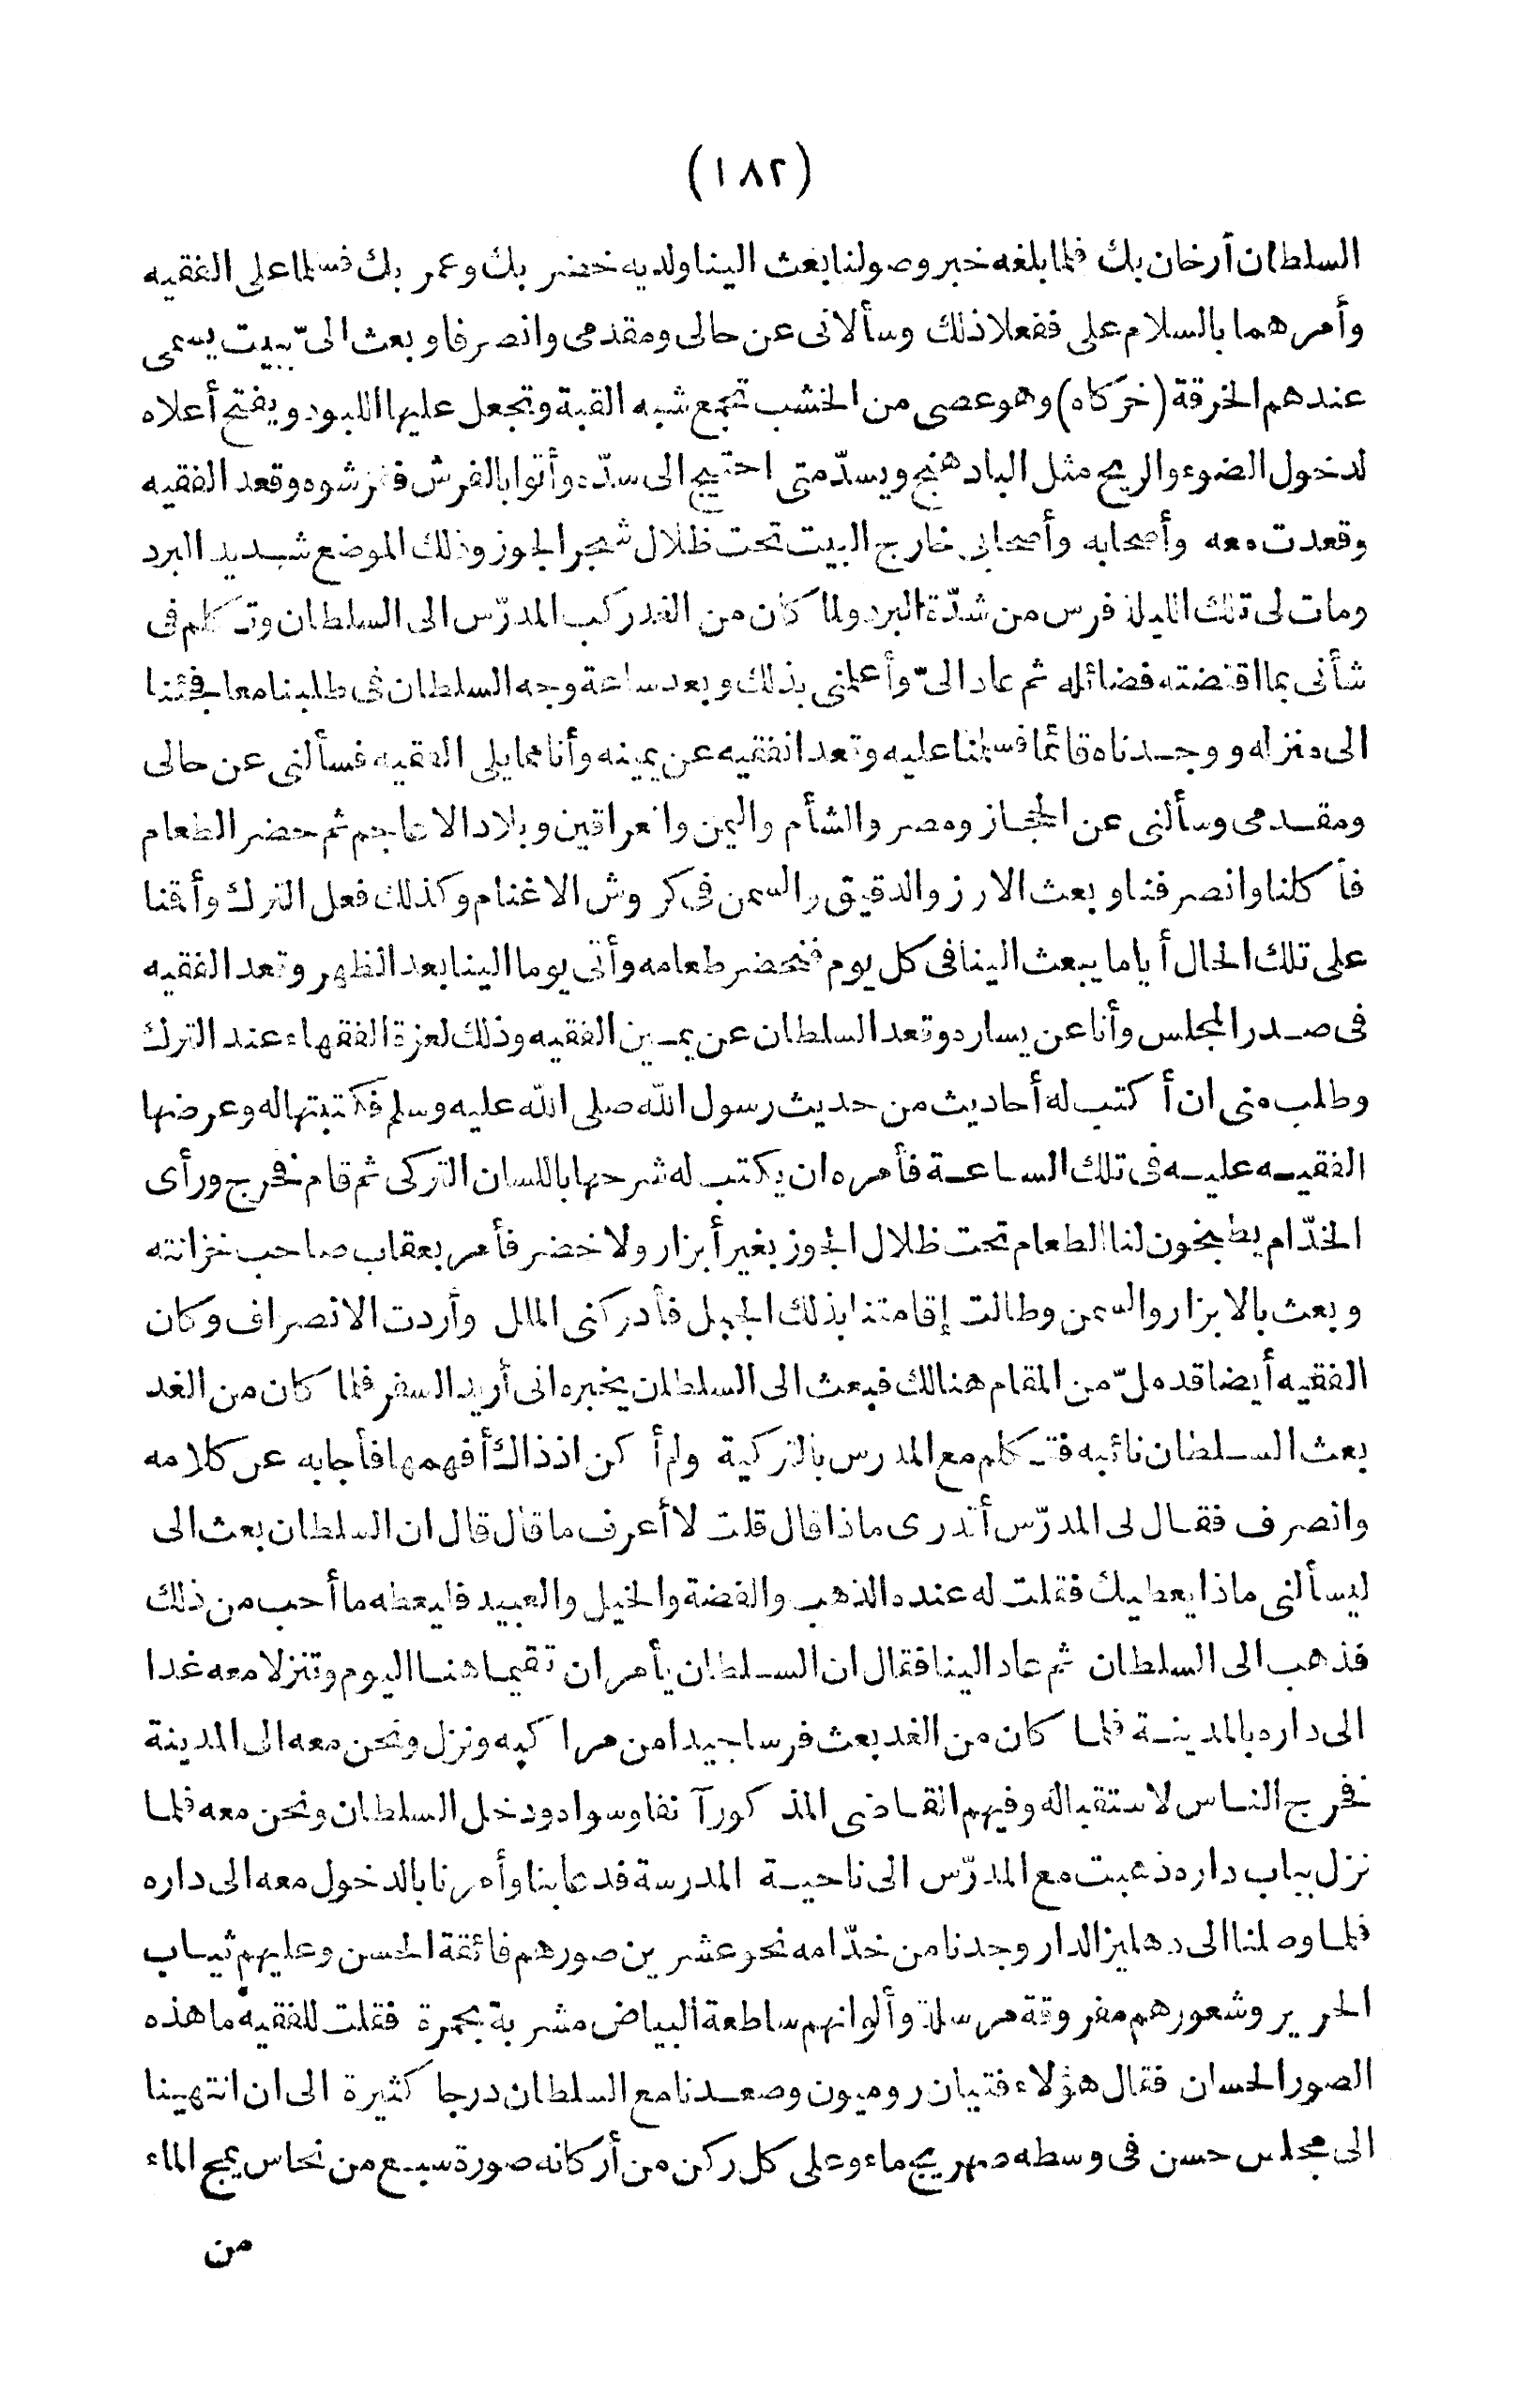 (١٨٢)
السلطان أرخان بك فلما بلغه خبر وصولنا بعث الينا ولديه خضر بك وعمر بك فسلما على الفقيه
وأمرهما بالسلام على ففعلا ذلك وسألانى عن حالى ومقدمى وانصرفا وبعث الىّ ببيت يسمى
عندهم الخرقة (خركاه) وهو عصى من الخشب تجمع شبه القبة وتجعل عليها اللبود ويفتح أعلاه
لدخول الضوء والريح مثل البادهنج ويسدّ متى احتيج الى سدّه وأتوا بالفرش ففرشوه وقعد الفقيه
وقعدت معه وأصحابه وأصحابى خارج البيت تحت ظلال شجر الجوز وذلك الموضع شديد البرد
ومات لى تلك الليلة فرس من شدّة البرد ولما كان من الغد ركب المدرّس الى السلطان وتكلم فى
شأنى بما اقتضته فضائله ثم عاد الىّ وأعلمنى بذلك وبعد ساعة وجه السلطان فى طلبنا معا فجئنا
الى منزله ووجدناه قائما فسلمنا عليه وقعد الفقيه عن يمينه وأنا مما يلى الفقيه فسألنى عن حالى
ومقدمى وسألنى عن الحجاز ومصر والشأم واليمن والعراقين وبلاد الاعاجم ثم حضر الطعام
فأكلنا وانصرفنا وبعث الارز والدقيق والسمن فى كروش الاغنام وكذلك فعل الترك وأقمنا
على تلك الحال أياما يبعث الينا فى كل يوم فنحضر طعامه وأتى يوما الينا بعد الظهر وقعد الفقيه
فى صدر المجلس وأنا عن يساره وقعد السلطان عن يمين الفقيه وذلك لعزة الفقهاء عند الترك
وطلب منى ان أكتب له أحاديث من حديث رسول الله صلى الله عليه وسلم فكتبتها له وعرضها
الفقيه عليه فى تلك الساعة فأمره ان يكتب له شرحها باللسان التركى ثم قام فخرج ورأى
الخدّام يطبخون لنا الطعام تحت ظلال الجوز بغير أبزار ولا خضر فأمر بعقاب صاحب خزانته
وبعث بالابزار والسمن وطالت إقامتنا بذلك الجبل فأدركنى الملل وأردت الانصراف وكان
الفقيه أيضا قد ملّ من المقام هنالك فبعث الى السلطان يخبره انى أريد السفر فلما كان من الغد
بعث السلطان نائبه فتكلم مع المدرس بالتركية ولم أكن اذ ذاك أفهمها فأجابه عن كلامه
وانصرف فقال لى المدرّس أتدرى ماذا قال قلت لا أعرف ما قال قال ان السلطان بعث الى
ليسألنى ماذا يعطيك فقلت له عنده الذهب والفضة والخيل والعبيد فليعطه ما أحب من ذلك
فذهب الى السلطان ثم عاد الينا فقال ان السلطان يأمر ان تقيما هنا اليوم وتنزلا معه غدا
الى داره بالمدينة فلما كان من الغد بعث فرسا جيدا من مراكبه ونزل ونحن معه الى المدينة
فخرج الناس لاستقباله وفيهم القاضى المذكور آنفا وسواه ودخل السلطان ونحن معه فلما
نزل بباب داره ذهبت مع المدرّس الى ناحية المدرسة فدعا بنا وأمرنا بالدخول معه الى داره
فلما وصلنا الى دهليز الدار وجدنا من خدّامه نحو عشرين صورهم فائقة الحسن وعليهم ثياب
الحرير وشعورهم مفروقة مرسلة وألوانهم ساطعة البياض مشربة بحمرة فقلت للفقيه ما هذه
الصور الحسان فقال هؤلاء فتيان روميون وصعدنا مع السلطان درجا كثيرة الى ان انتهينا
الى مجلس حسن فى وسطه صهريج ماء وعلى كل ركن من أركانه صورة سبع من نحاس يمج الماء
من